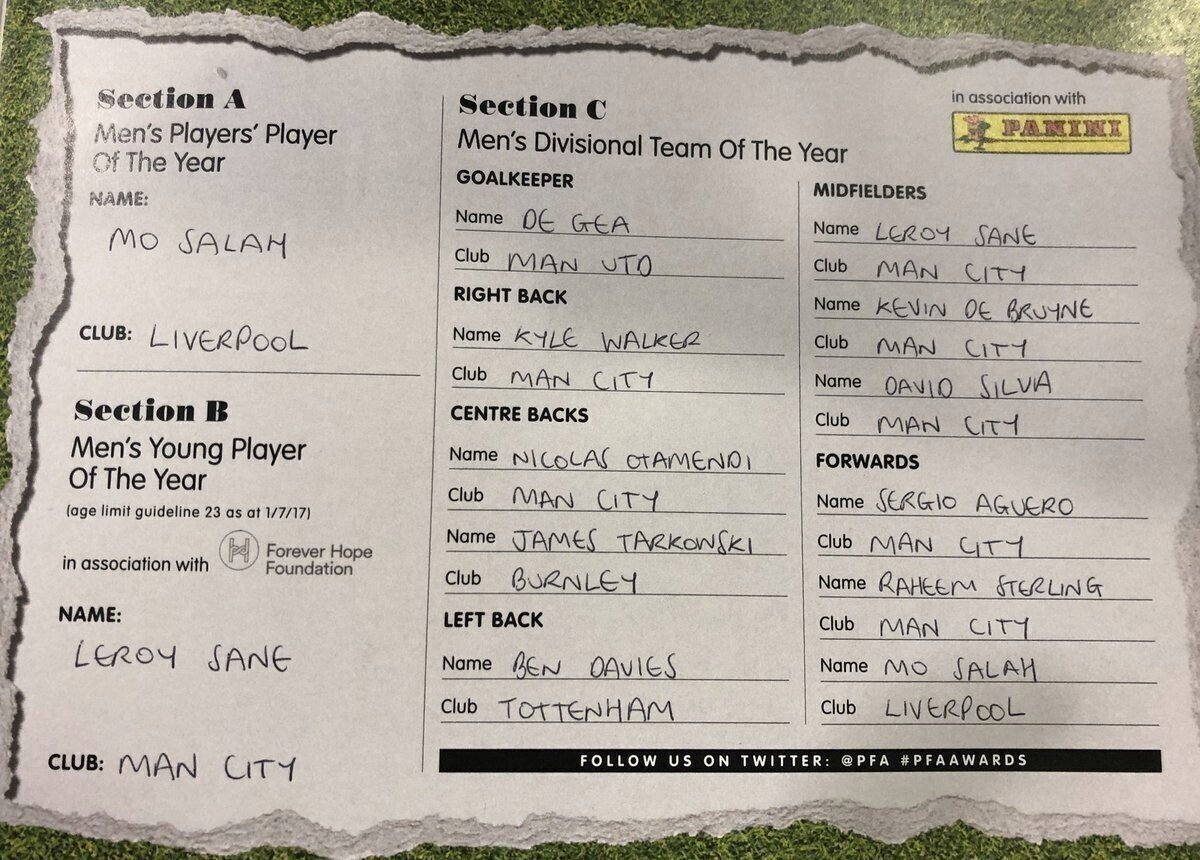 Section A
Men's Players' Player
Of The Year
NAME:
MO SALAH
CLUB: LIVERPOOL
Section B
Men's Young Player
Of The Year
(age limit guideline 23 as at 1/7/17)
in association with Forever Hope
Foundation
NAME:
LEROY SANE
CLUB: MAN CITY
Section C
Men's Divisional Team Of The Year
in association with
PANINI
GOALKEEPER
Name DE GEA
Club MAN UTD
RIGHT BACK
Name KYLE WALKER
Club MAN CITY
CENTRE BACKS
Name NICOLAS OTAMENDI
Club MAN CITY
Name JAMES TARKOWSKI
Club BURNLEY
LEFT BACK
Name BEN DAVIES
Club TOTTENHAM
MIDFIELDERS
Name LEROY SANE
Club MAN CITY
Name KEVIN DE BRUYNE
Club MAN CITY
Name DAVID SILVA
Club MAN CITY
FORWARDS
Name SERGIO AGUERO
Club MAN CITY
Name RAHEEM STERLING
Club MAN CITY
Name MO SALAH
Club LIVERPOOL
FOLLOW US ON TWITTER: @PFA #PFAAWARDS